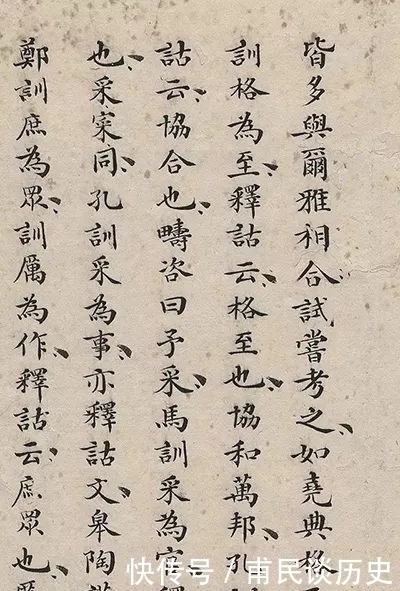 皆多與爾雅相合試嘗考之如堯典格
訓格為至釋詁云格至也協和萬邦孔
詁云協合也疇咨曰予采馬訓采為官
也采寀同孔訓采為事亦釋詁文皋陶
鄭訓庶為眾訓厲為作釋詁云庶眾也
快传号 / 甫民谈历史